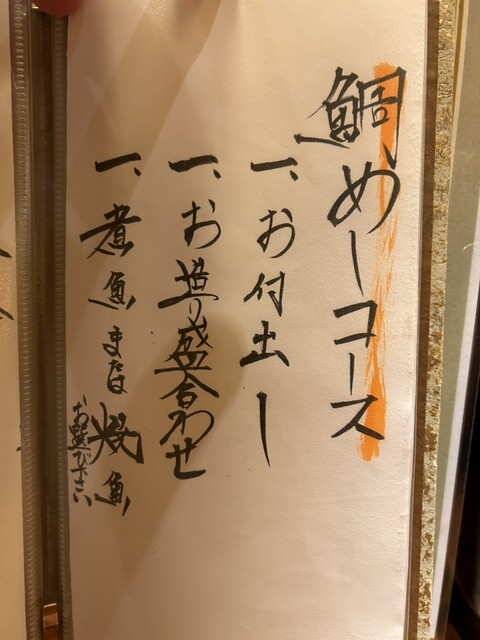 鯛めしコース
一、お付出し
一、お造り盛合わせ
一、煮魚または焼魚
お選び下さい